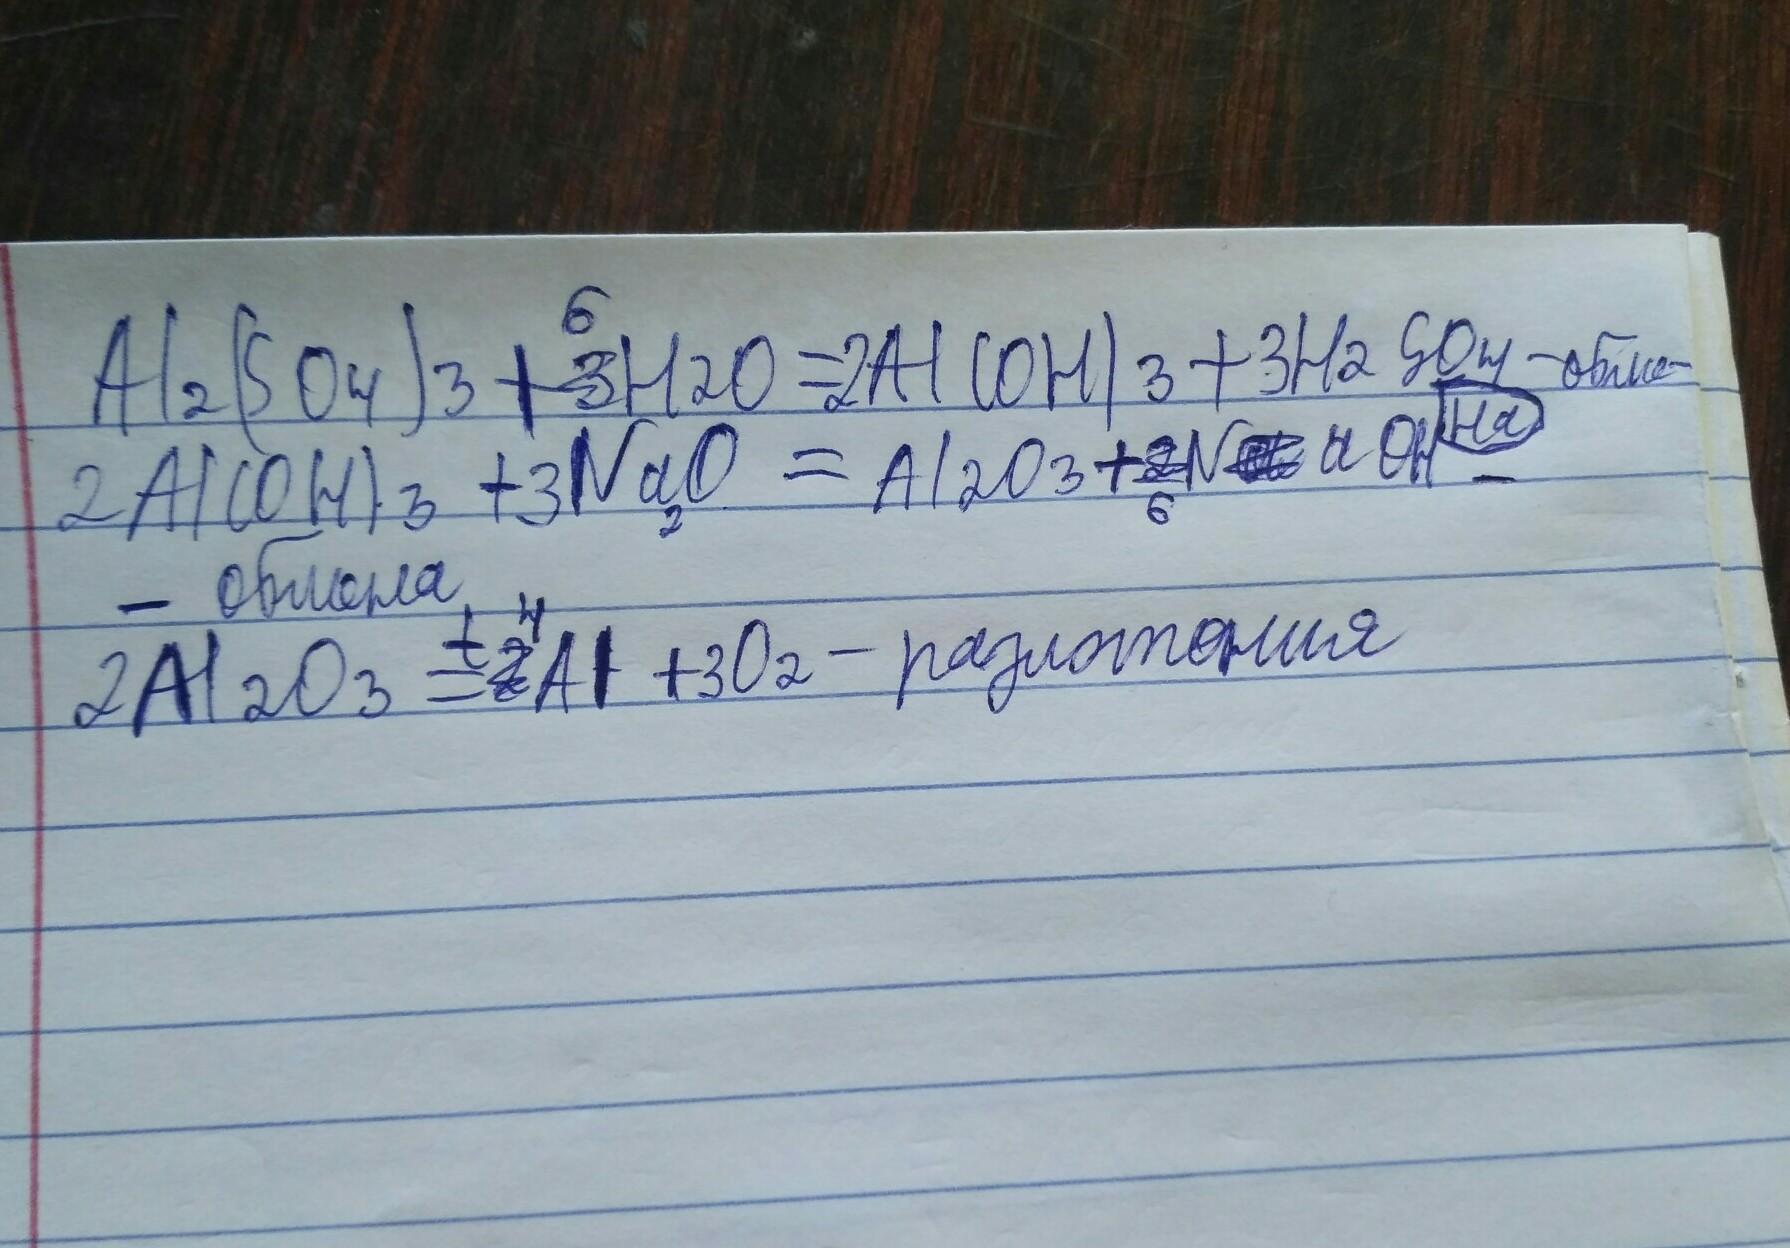 Al2(SO4)3 + 6H2O = 2Al(OH)3 + 3H2SO4 - обме-
на
2Al(OH)3 + 3Na2O = Al2O3 + 6NaOH -
- обмена
2Al2O3 =t 4Al + 3O2 - разложения